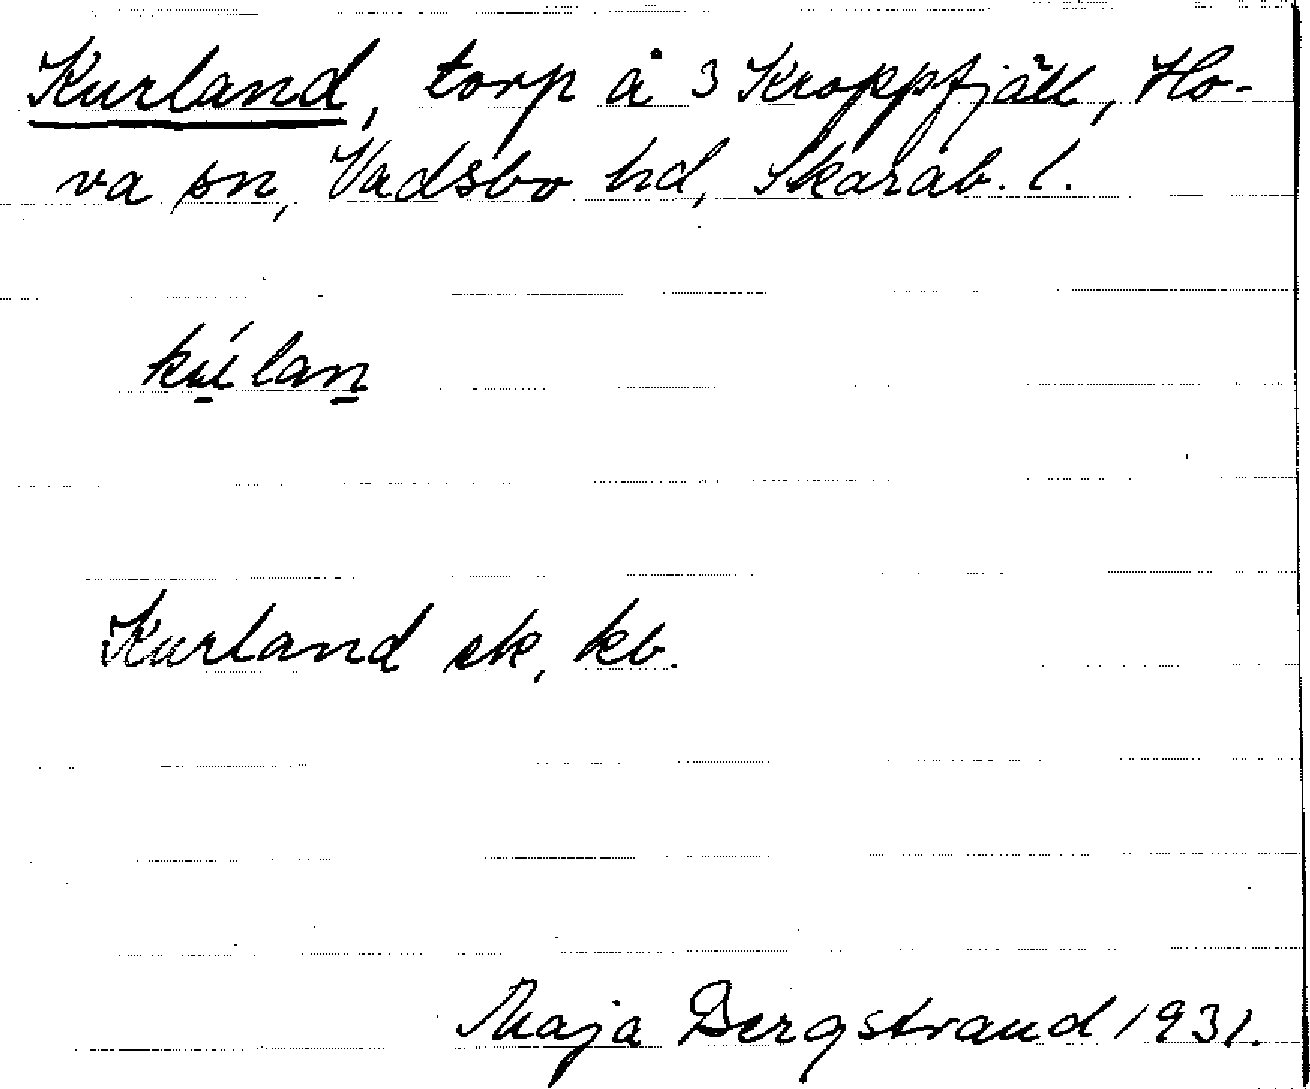 Kurland, torp å 3 Kroppfjäll, Ho-
va sn, Vadsbo hd, Skarab. l.
kúlan
Kurland ek, kb.
Maja Bergstrand 1931.